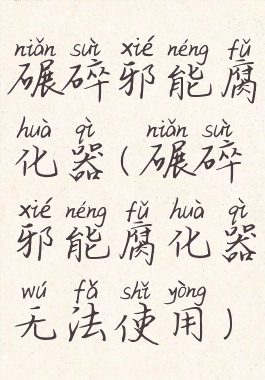 niǎn suì xié néng fǔ
碾碎邪能腐
huà qì niǎn suì
化器（碾碎
xié néng fǔ huà qì
邪能腐化器
wú fǎ shǐ yòng
无法使用）